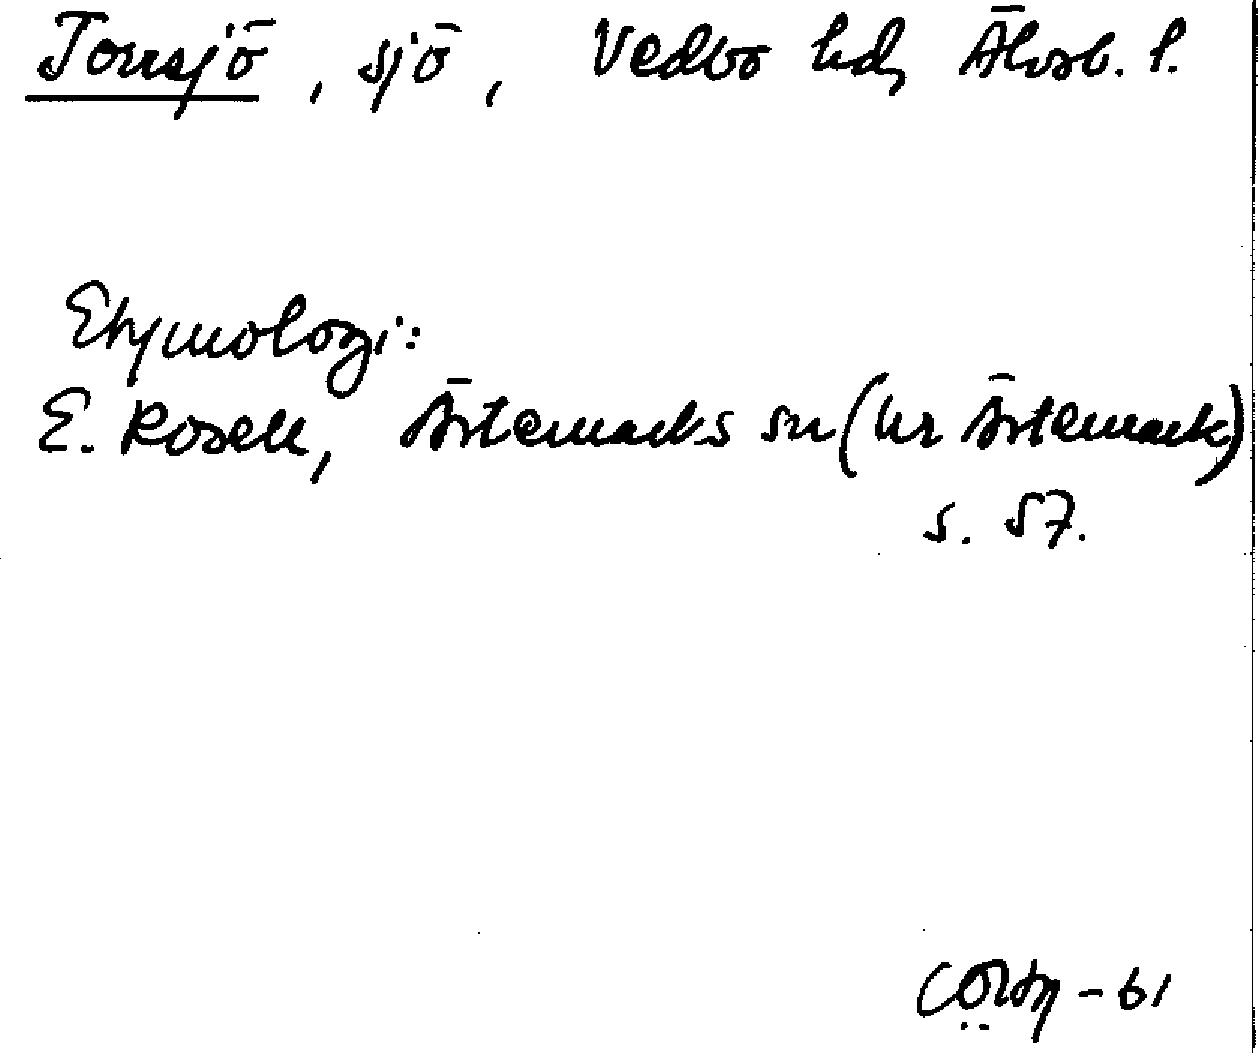 Torrsjö, sjö, Vedbo hd, Älvsb. l.
Etymologi:
E. Rosell, Ärtemarks sn (ur Ärtemark)
s. 57.
-61